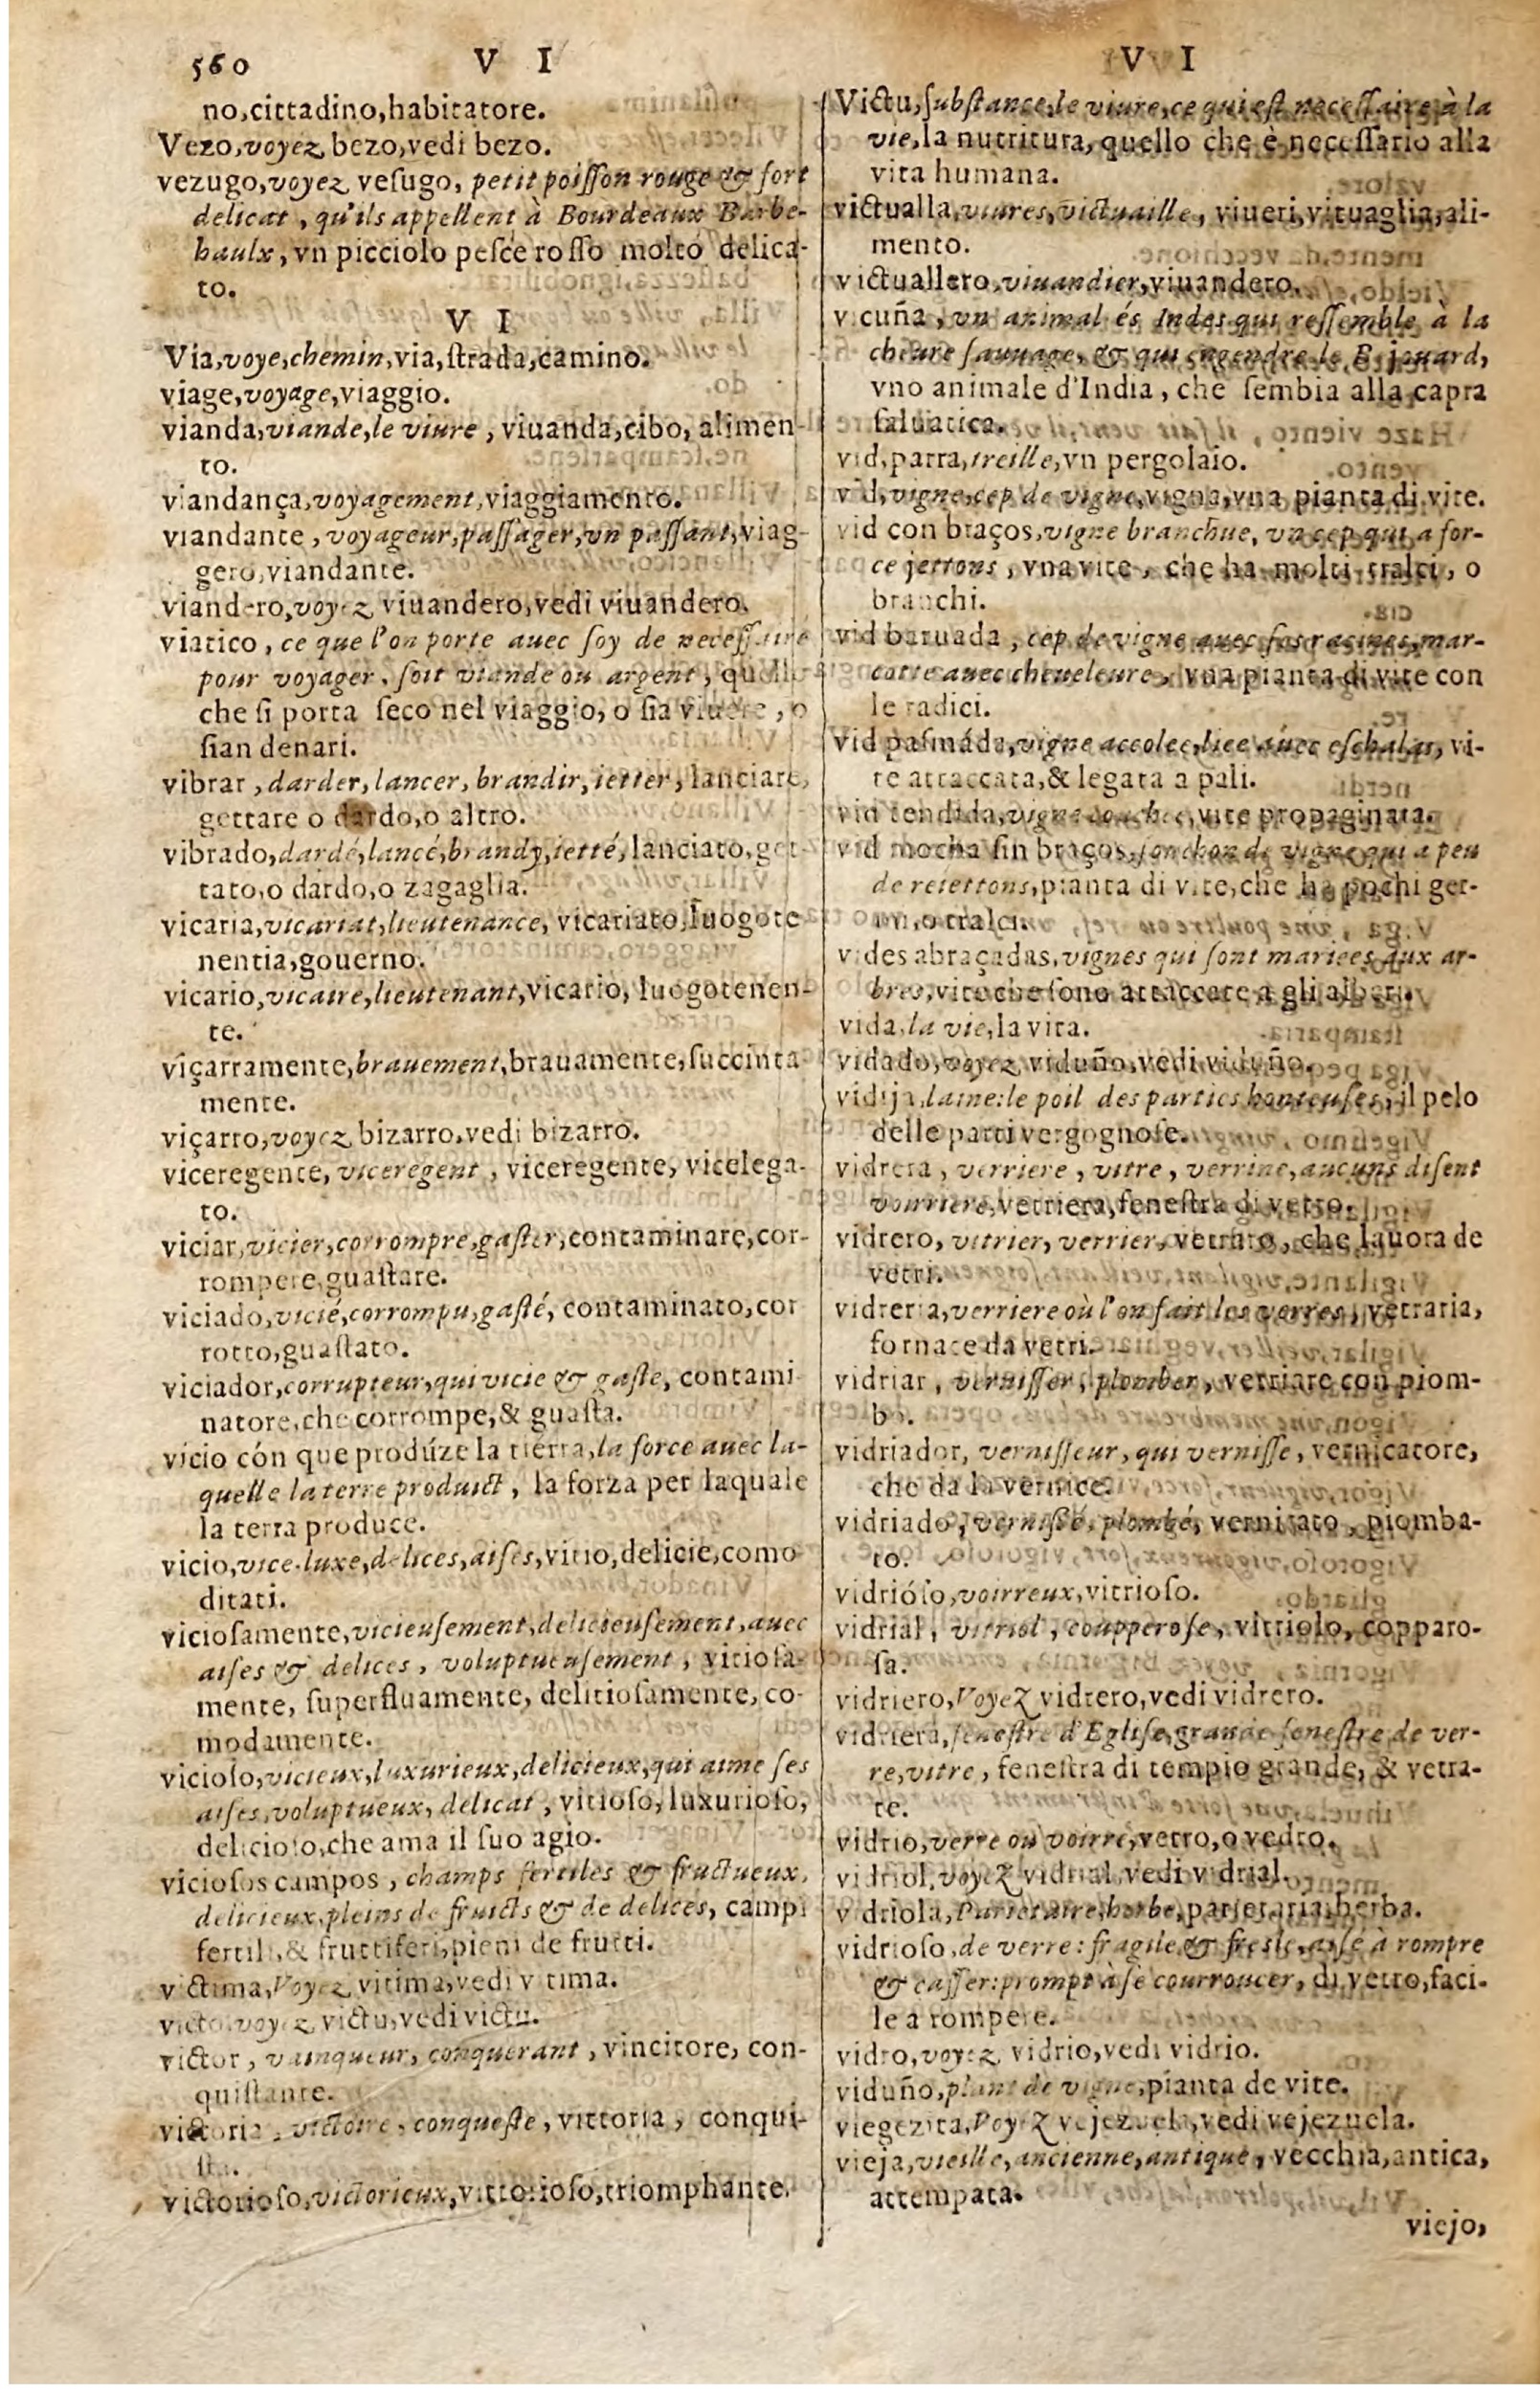 560 V I
no,cittadino,habitatore.
Vezo,voyez bezo,vedi bezo.
vezugo,voyez veſugo, petit poiſſon rouge & fort
delicat , qu'ils appellent à Bourdeaux Barbe-
haulx, vn picciolo peſce roſſo molto delica-
to.
V I
Via,voye,chemin,via,ſtrada,camino.
viage,voyage,viaggio.
vianda,viande,le viure, viuanda,cibo, alimen-
to.
viandança,voyagement,viaggiamento.
viandante ,voyageur,paſſager,vn paſſant,viag-
gero,viandante.
viandero,voyez viuandero,vedi viuandero.
viatico, ce que l'on porte auec ſoy de neceſſaire
pour voyager, ſoit viande ou argent, quello
che ſi porta ſeco nel viaggio, o ſia viuere, o
ſian denari.
vibrar ,darder,lancer, brandir,ietter, lanciare,
gettare o dardo,o altro.
vibrado,dardé,lancé,brandy,ietté,lanciato,get-
tato,o dardo,o zagaglia.
vicaria,vicariat,lieutenance, vicariato,luogote
nentia,gouerno.
vicario,vicaire,lieutenant,vicario, luogotenen-
te.
viçarramente,brauement,brauamente,ſuccinta
mente.
viçarro,voyez bizarro,vedi bizarro.
viceregente, viceregent , viceregente, vicelega-
to.
viciar,vicier,corrompre,gaſter,contaminare,cor-
rompere,guaſtare.
viciado,vicié,corrompu,gaſté, contaminato,cor
rotto,guaſtato.
viciador,corrupteur,qui vicie & gaſte, contami
natore,che corrompe,& guaſta.
vicio cón que prodúze la tierra,la force auec la-
quelle la terre produict, la forza per laquale
la terra produce.
vicio,vice.luxe,delices,aiſes,vitio,delicie,como
ditati.
vicioſamente,vicieuſement,delicieuſement,auec
aiſes & delices, voluptueuſement, vitioſa-
mente, ſuperfluamente, delitioſamente, co-
modamente.
vicioſo,vicieux,luxurieux,delicieux,qui aime ſes
aiſes,voluptueux, delicat, vitioſo, luxurioſo,
delicioſo,che ama il ſuo agio.
vicioſos campos, champs fertiles & fructueux,
delicieux,pleins de fruicts & de delices, campi
fertili,& fruttiferi,pieni de frutti.
victima,Voyez vitima,vedi vitima.
victo.voyez victu,vedi victu.
victor, vainqueur, conquerant, vincitore, con-
quiſtante.
victoria, victoire, conqueſte, vittoria, conqui-
ſta.
victorioſo,victorieux,vittorioſo,triomphante.
V I
Victu,ſubſtance,le viure,ce qui eſt neceſſaire à la
vie,la nutritura, quello che è neceſſario alla
vita humana.
victualla,viures,victuaille, viueri,vituaglia,ali-
mento.
victuallero,viuandier,viuandero.
vicuña, vn animal és Indes qui reſſemble à la
cheure ſauuage, & qui engendre le
vno animale d'India, che ſembia alla capra
ſaluatica.
vid,parra,treille,vn pergolaio.
vid,vigne,cep de vigne,vigna,vna pianta di vite.
vid con braços,vigne branchue, vn cep qui a for-
ce jettons, vna vite, che ha molti tralci, o
branchi.
vid baruada, cep de vigne auec ſes racines,mar-
cotte auec cheueleure, vna pianta di vite con
le radici.
vid paſmáda,vigne accolee,liee auec eſchalas, vi-
te attaccata,& legata a pali.
vid tendida,vigne couchee,vite propaginata.
vid mocha ſin braços, de vigne qui a peu
de reiettons,pianta di vite,che ha pochi ger-
mi,o tralci.
vides abraçadas,vignes qui ſont mariees aux ar-
bres,vite che ſono attaccate a gli alberi.
vida,la vie,la vita.
vidado,voyez viduño,vedi viduño.
vidija,laine:le poil des parties honteuſes, il pelo
delle parti vergognoſe.
vidrera, verriere, vitre, verrine,aucuns diſent
voirriere,vetriera,feneſtra di vetro.
vidrero, vitrier, verrier, vetraro, che lauora de
vetri.
vidreria,verriere où l'on fait les verres, vetraria,
fornace da vetri.
vidriar, verniſſer, plomber, vetriare con piom-
bo.
vidriador, verniſſeur, qui verniſſe, vernicatore,
che da la vernice.
vidriado, verniſſé, plombé, vernicato, piomba-
to.
vidrióſo,voirreux,vitrioſo.
vidrial, vitriol, coupperoſe, vitriolo, copparo-
ſa.
vidriero,Voyez vidrero,vedi vidrero.
vidriera,feneſtre d'Egliſe,grande feneſtre de ver-
re,vitre, feneſtra di tempio grande, & vetra-
te.
vidrio,verre ou voirre,vetro,o vedro.
vidriol,voyez vidrial,vedi vidrial.
vidriola,Parietaire,herbe,parietaria,herba.
vidrioſo,de verre:fragile & freſle,aiſé à rompre
& caſſer:prompt à ſe courroucer, di vetro,faci-
le a rompere.
vidro,voyez vidrio,vedi vidrio.
viduño,plant de vigne,pianta de vite.
viegezita,Voyez vejezuela,vedi vejezuela.
vieja,vieille,ancienne,antique, vecchia,antica,
attempata.
viejo,